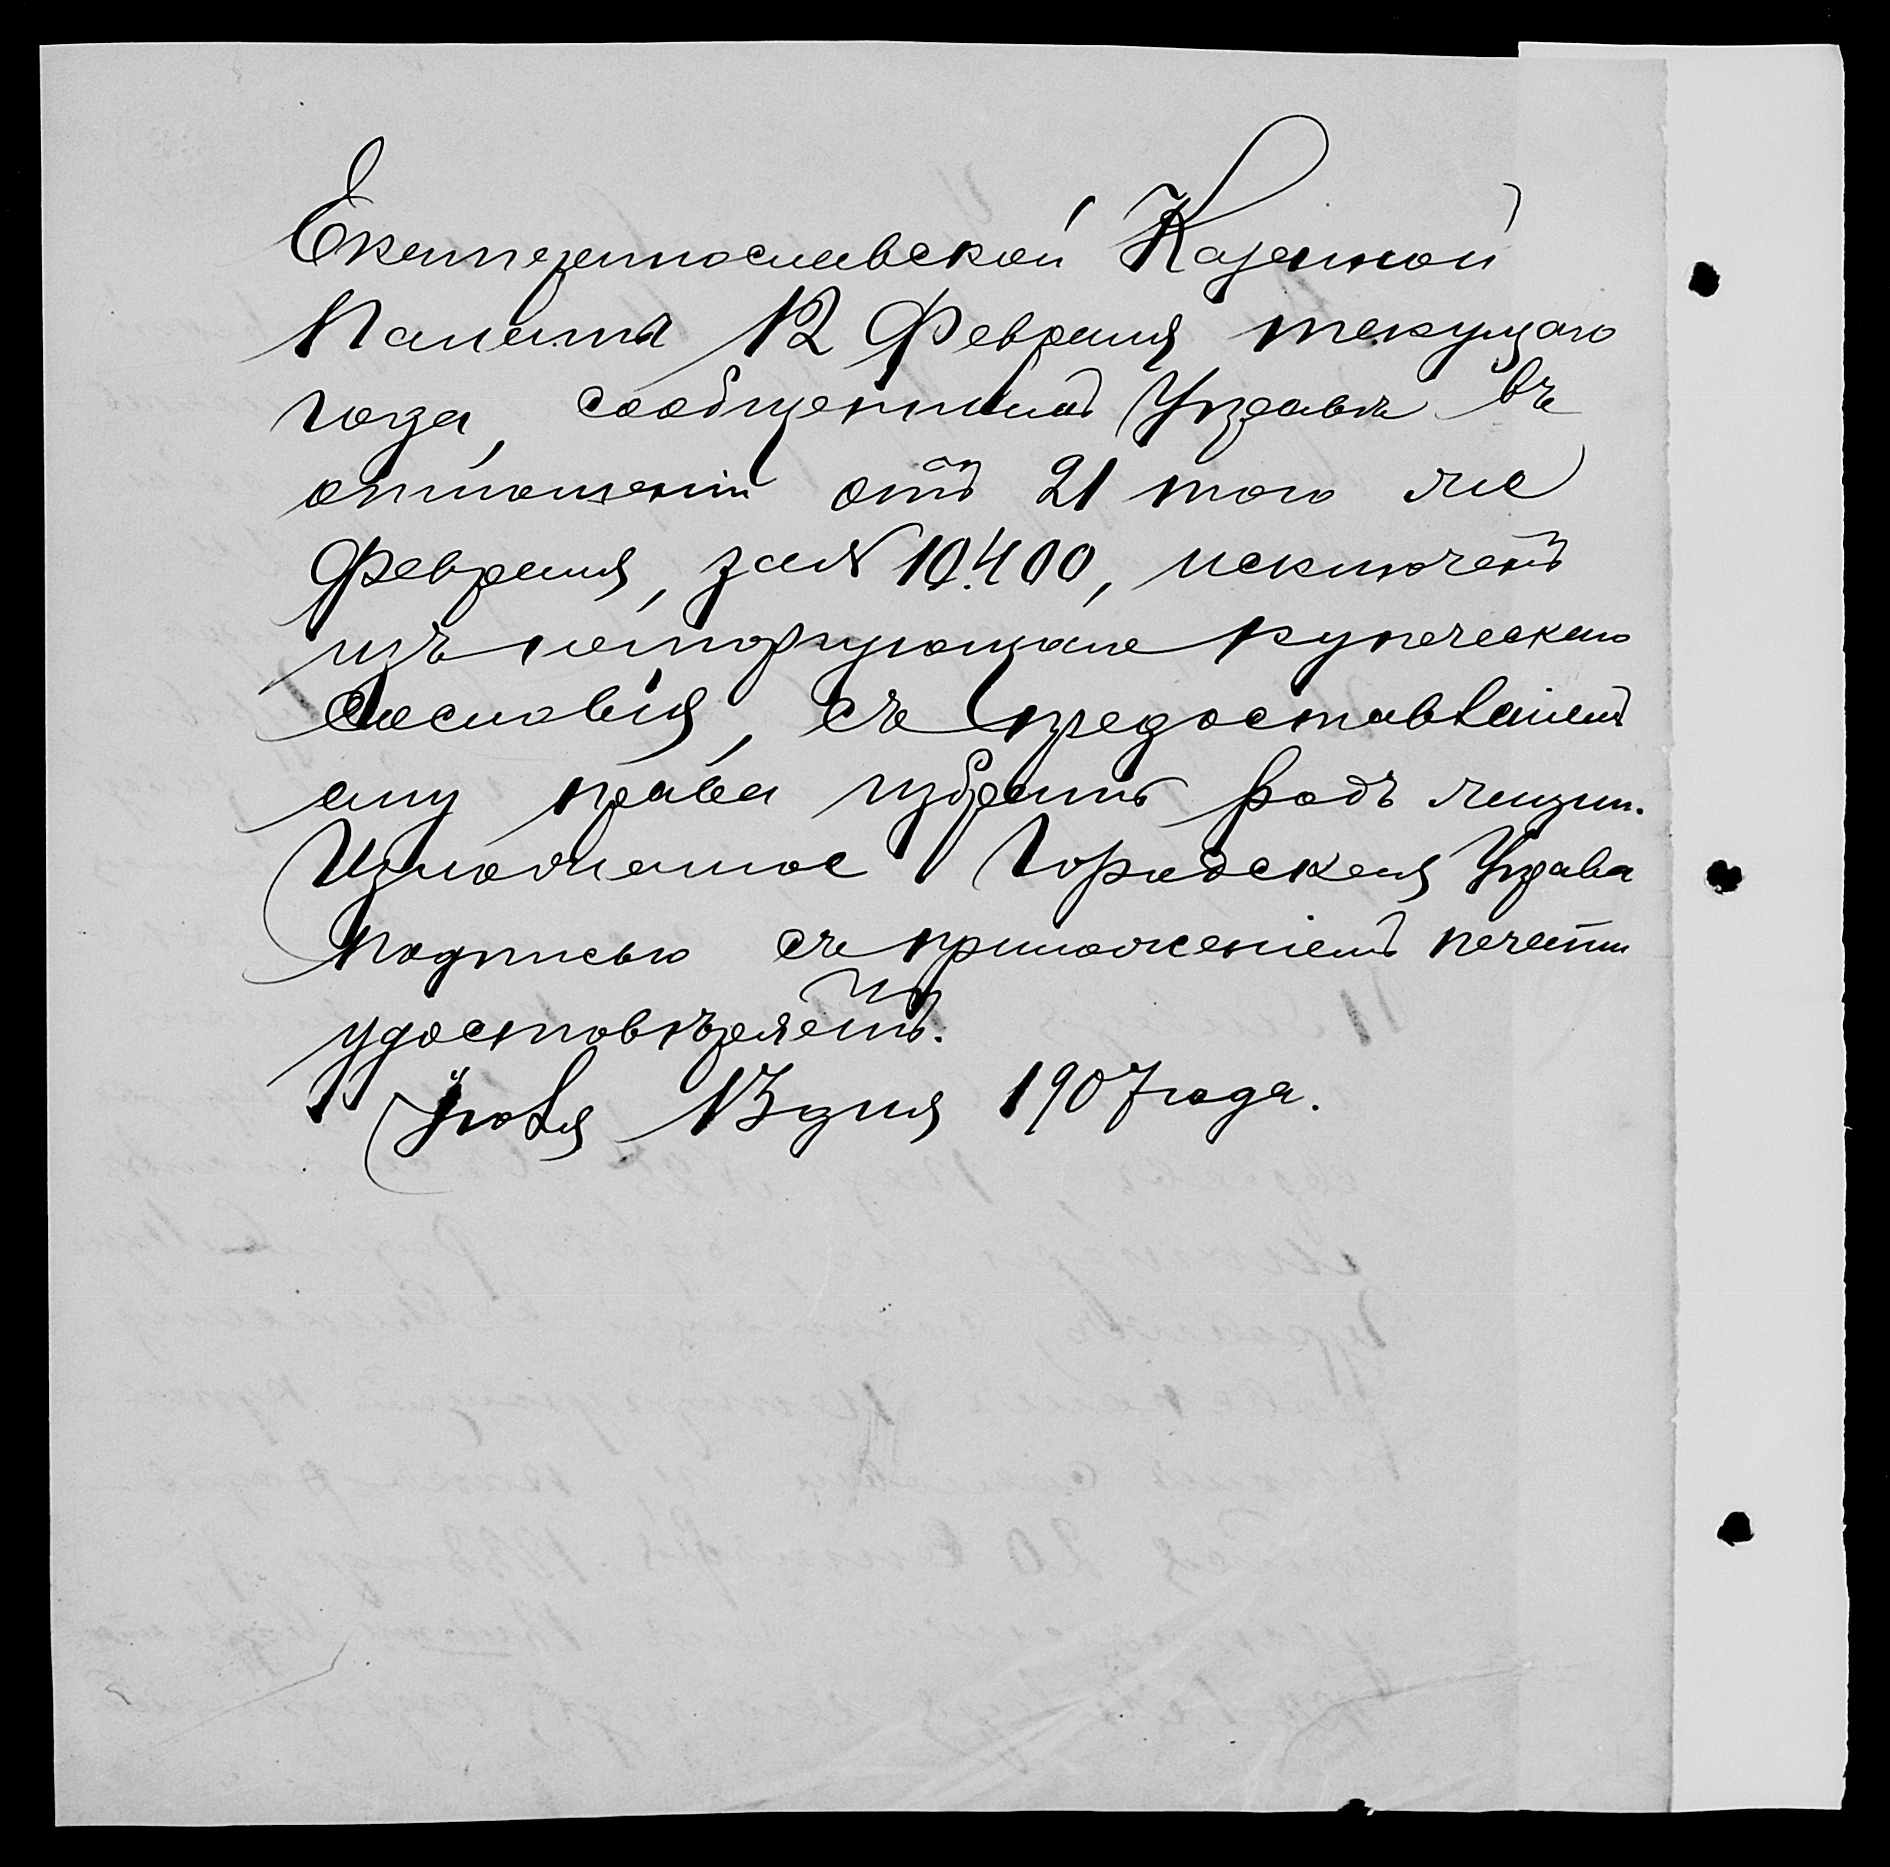 Екатеринославской Казенной
Палаты 12 Февраля текущаго
года, сообщеннымъ Управѣ въ
отношеніи отъ 21 того же
Февраля, за № 10400, исключенъ
изъ неторгующаго купеческаго
сословія, съ предоставленіемъ
ему права избрать родъ жизни.
Изложенное Городская Управа
подписью съ приложеніемъ печати
удостовѣряетъ.
Іюля 13 дня 1907 года.